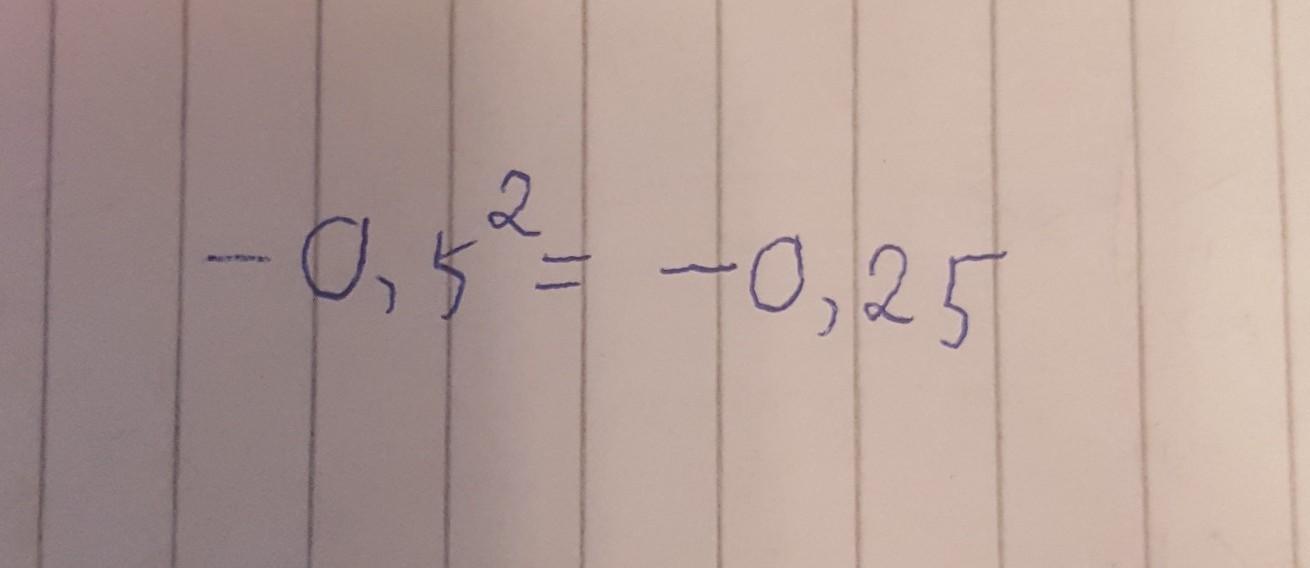 -0,5²= -0,25